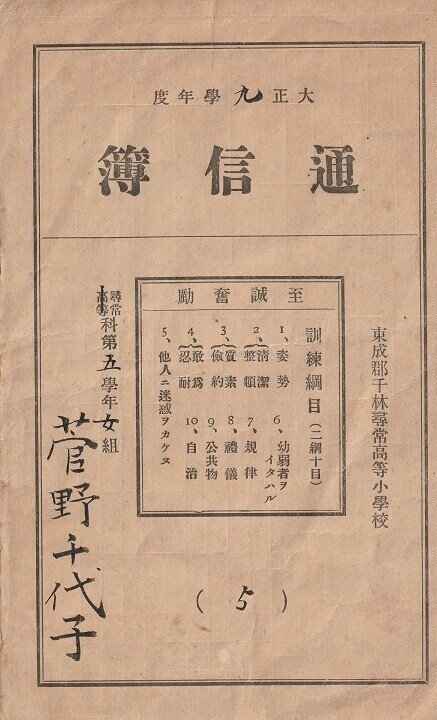 大正九學年度
通信簿
東成郡千林尋常高等小學校
至誠奮勵
訓練綱目(二綱十目)
1、姿勢
2、清潔
整頓
3、質素
儉約
4、敢爲
忍耐
5、他人ニ迷惑ヲカケヌ
6、幼弱者ヲ
イタハル
7、規律
8、禮儀
9、公共物
10、自治
尋常
高等
科第五學年女組
菅野千代子
(5)